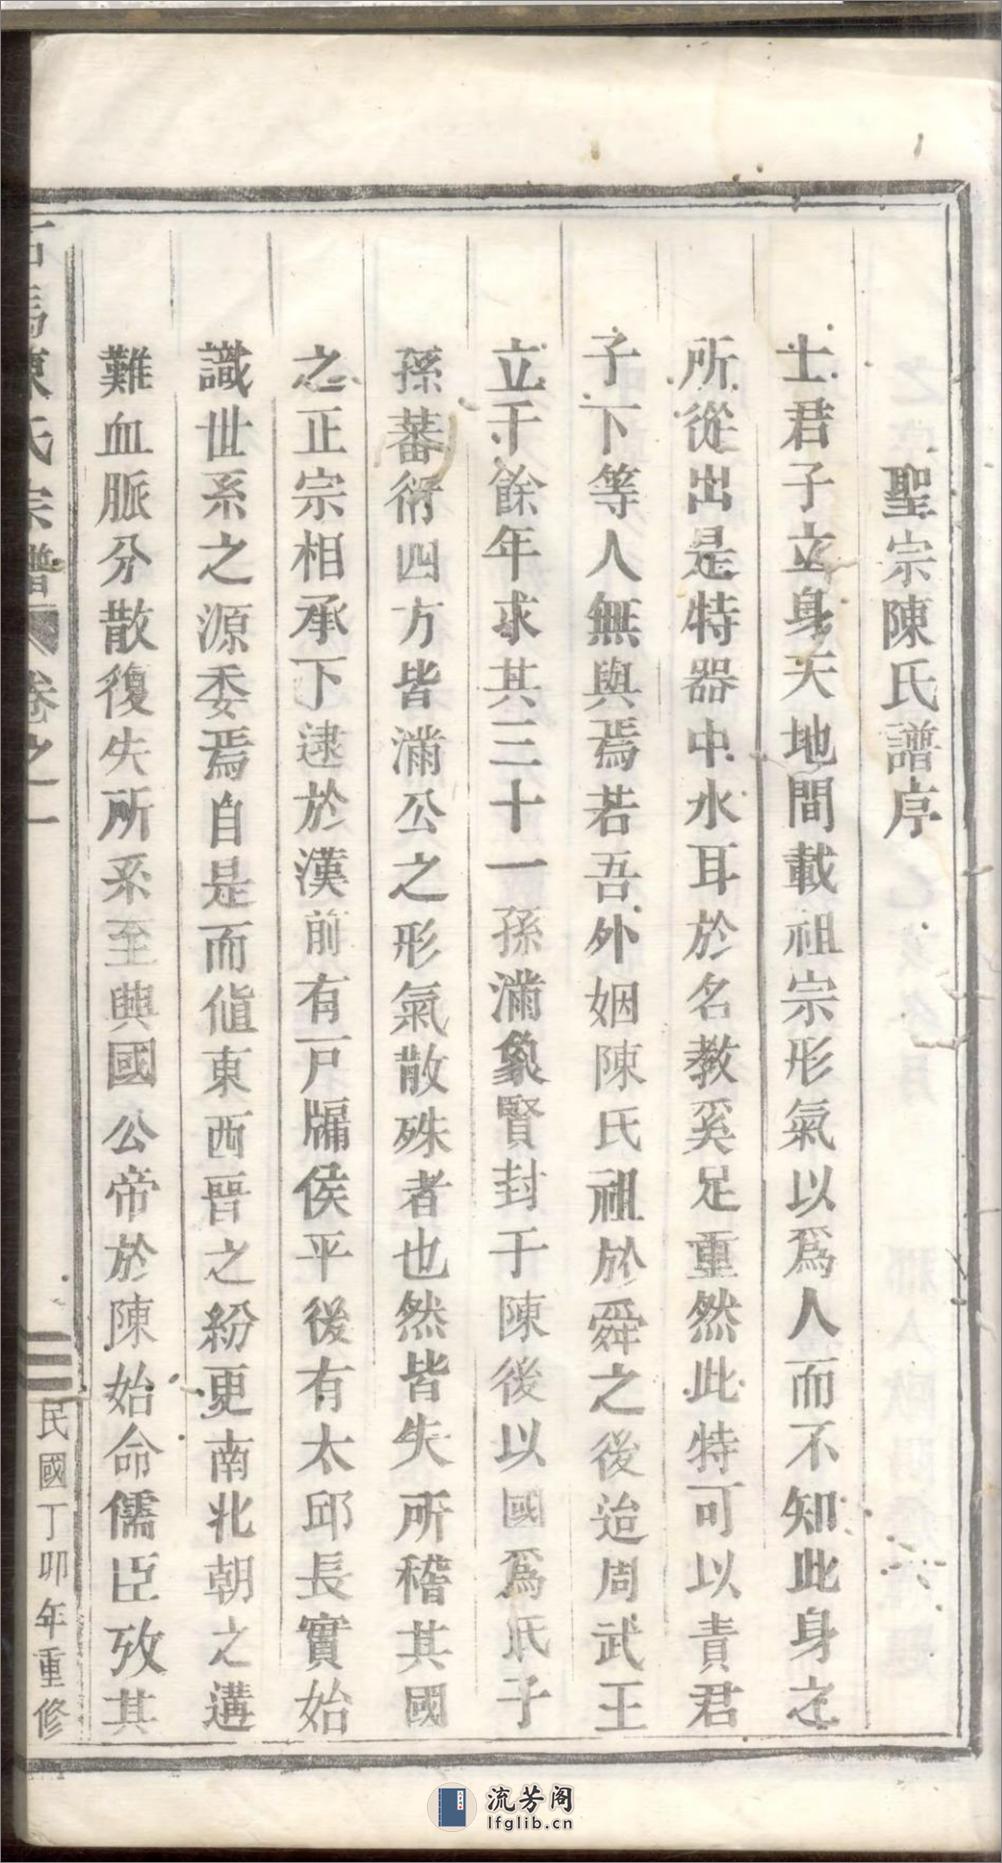 聖宗陳氏譜序
士君子立身天地間載祖宗形氣以爲人而不知此身之
所從出是特器中水耳於名教奚足重然此特可以責君
子下等人無與焉若吾外姻陳氏祖於舜之後迨周武王
立千餘年求其三十一孫滿象賢封于陳後以國爲氏子
孫蕃衍四方皆滿公之形氣散殊者也然皆失所稽其國
之正宗相承下逮於漢前有戸牖侯平後有太邱長實始
識世系之源委焉自是而値東西晉之紛更南北朝之遘
難血脈分散復失所系至興國公帝於陳始命儒臣攷其
石馬陳氏宗譜 卷之一
三
民國丁卯年重修
流芳阁
lfglib.cn